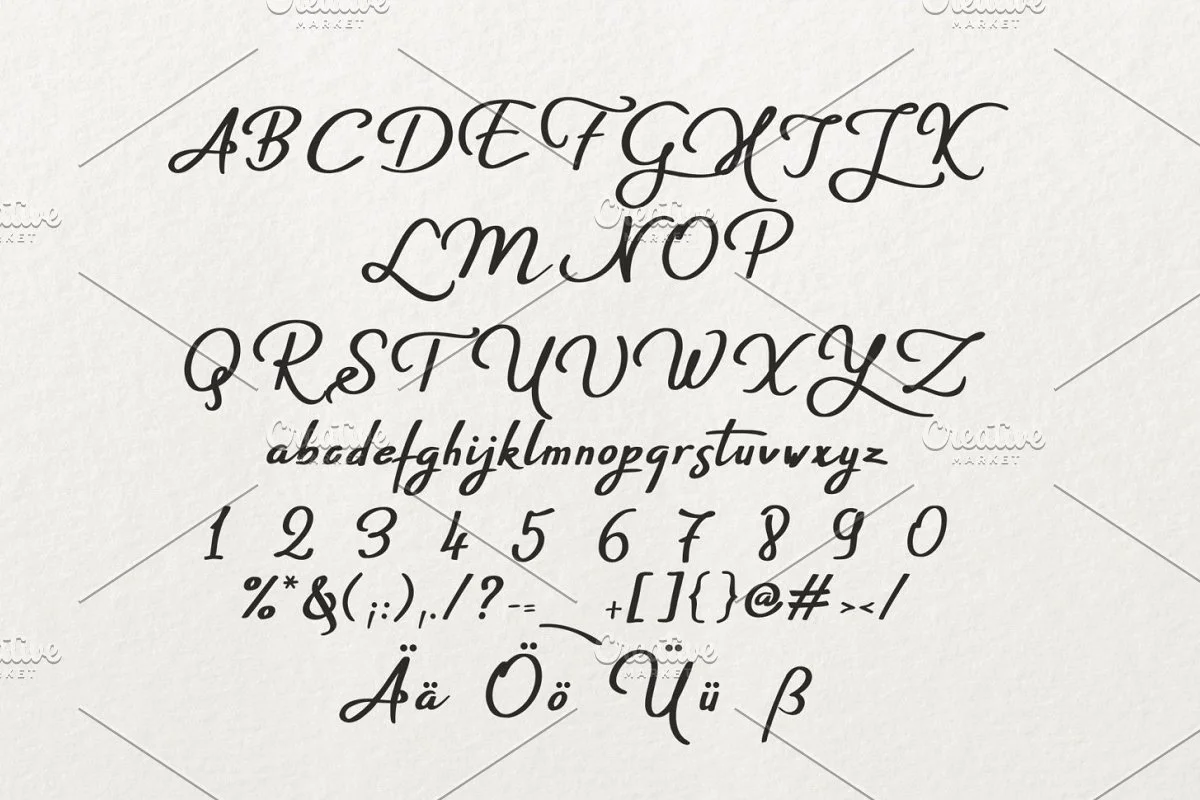 Creative MARKET Creative MARKET
ABCDEFGHIJK
Creative MARKET Creative MARKET
LMNOP
QRSTUVWXYZ
Creative MARKET Creative MARKET
abcdefghijklmnopqrstuvwxyz
1 2 3 4 5 6 7 8 9 0
%*&(;:),./?-=_ +[]{}@#></
Creative MARKET Creative MARKET
Ää Öö Üü ß